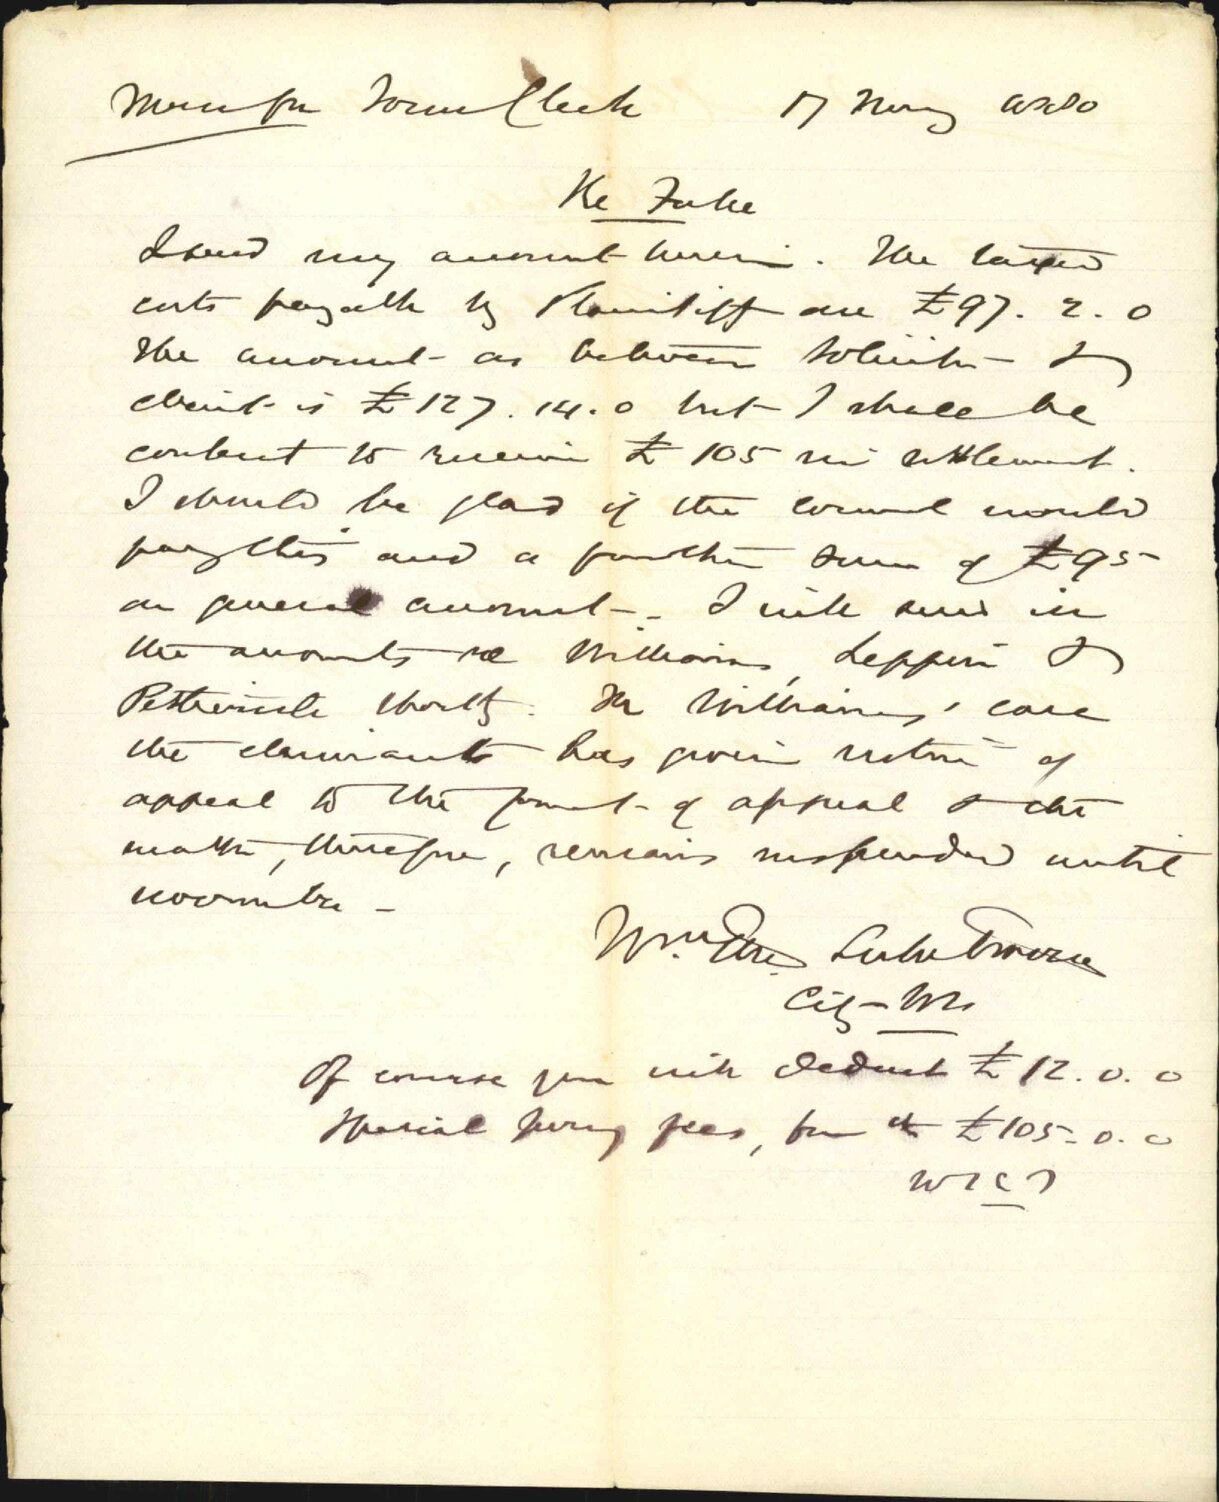 Memo for Town Clerk 17
Re
I send my account herein. The taxed
costs payable by Plaintiff are £97. 2. 0
The amount as between Solicitor &
client is £127. 14. 0 but I shall be
content to receive £105 in settlement.
I should be glad if the Council would
pay this and a further sum of £95
on general account. I will send in
the accounts re Williams, &
shortly. In Williams' case
the claimants has given notice of
appeal to the Court of Appeal & the
matter, therefore, remains suspended until
November.
Wm.
City
Of course you will deduct £12. 0. 0
Special Jury fees, from the £105. 0. 0